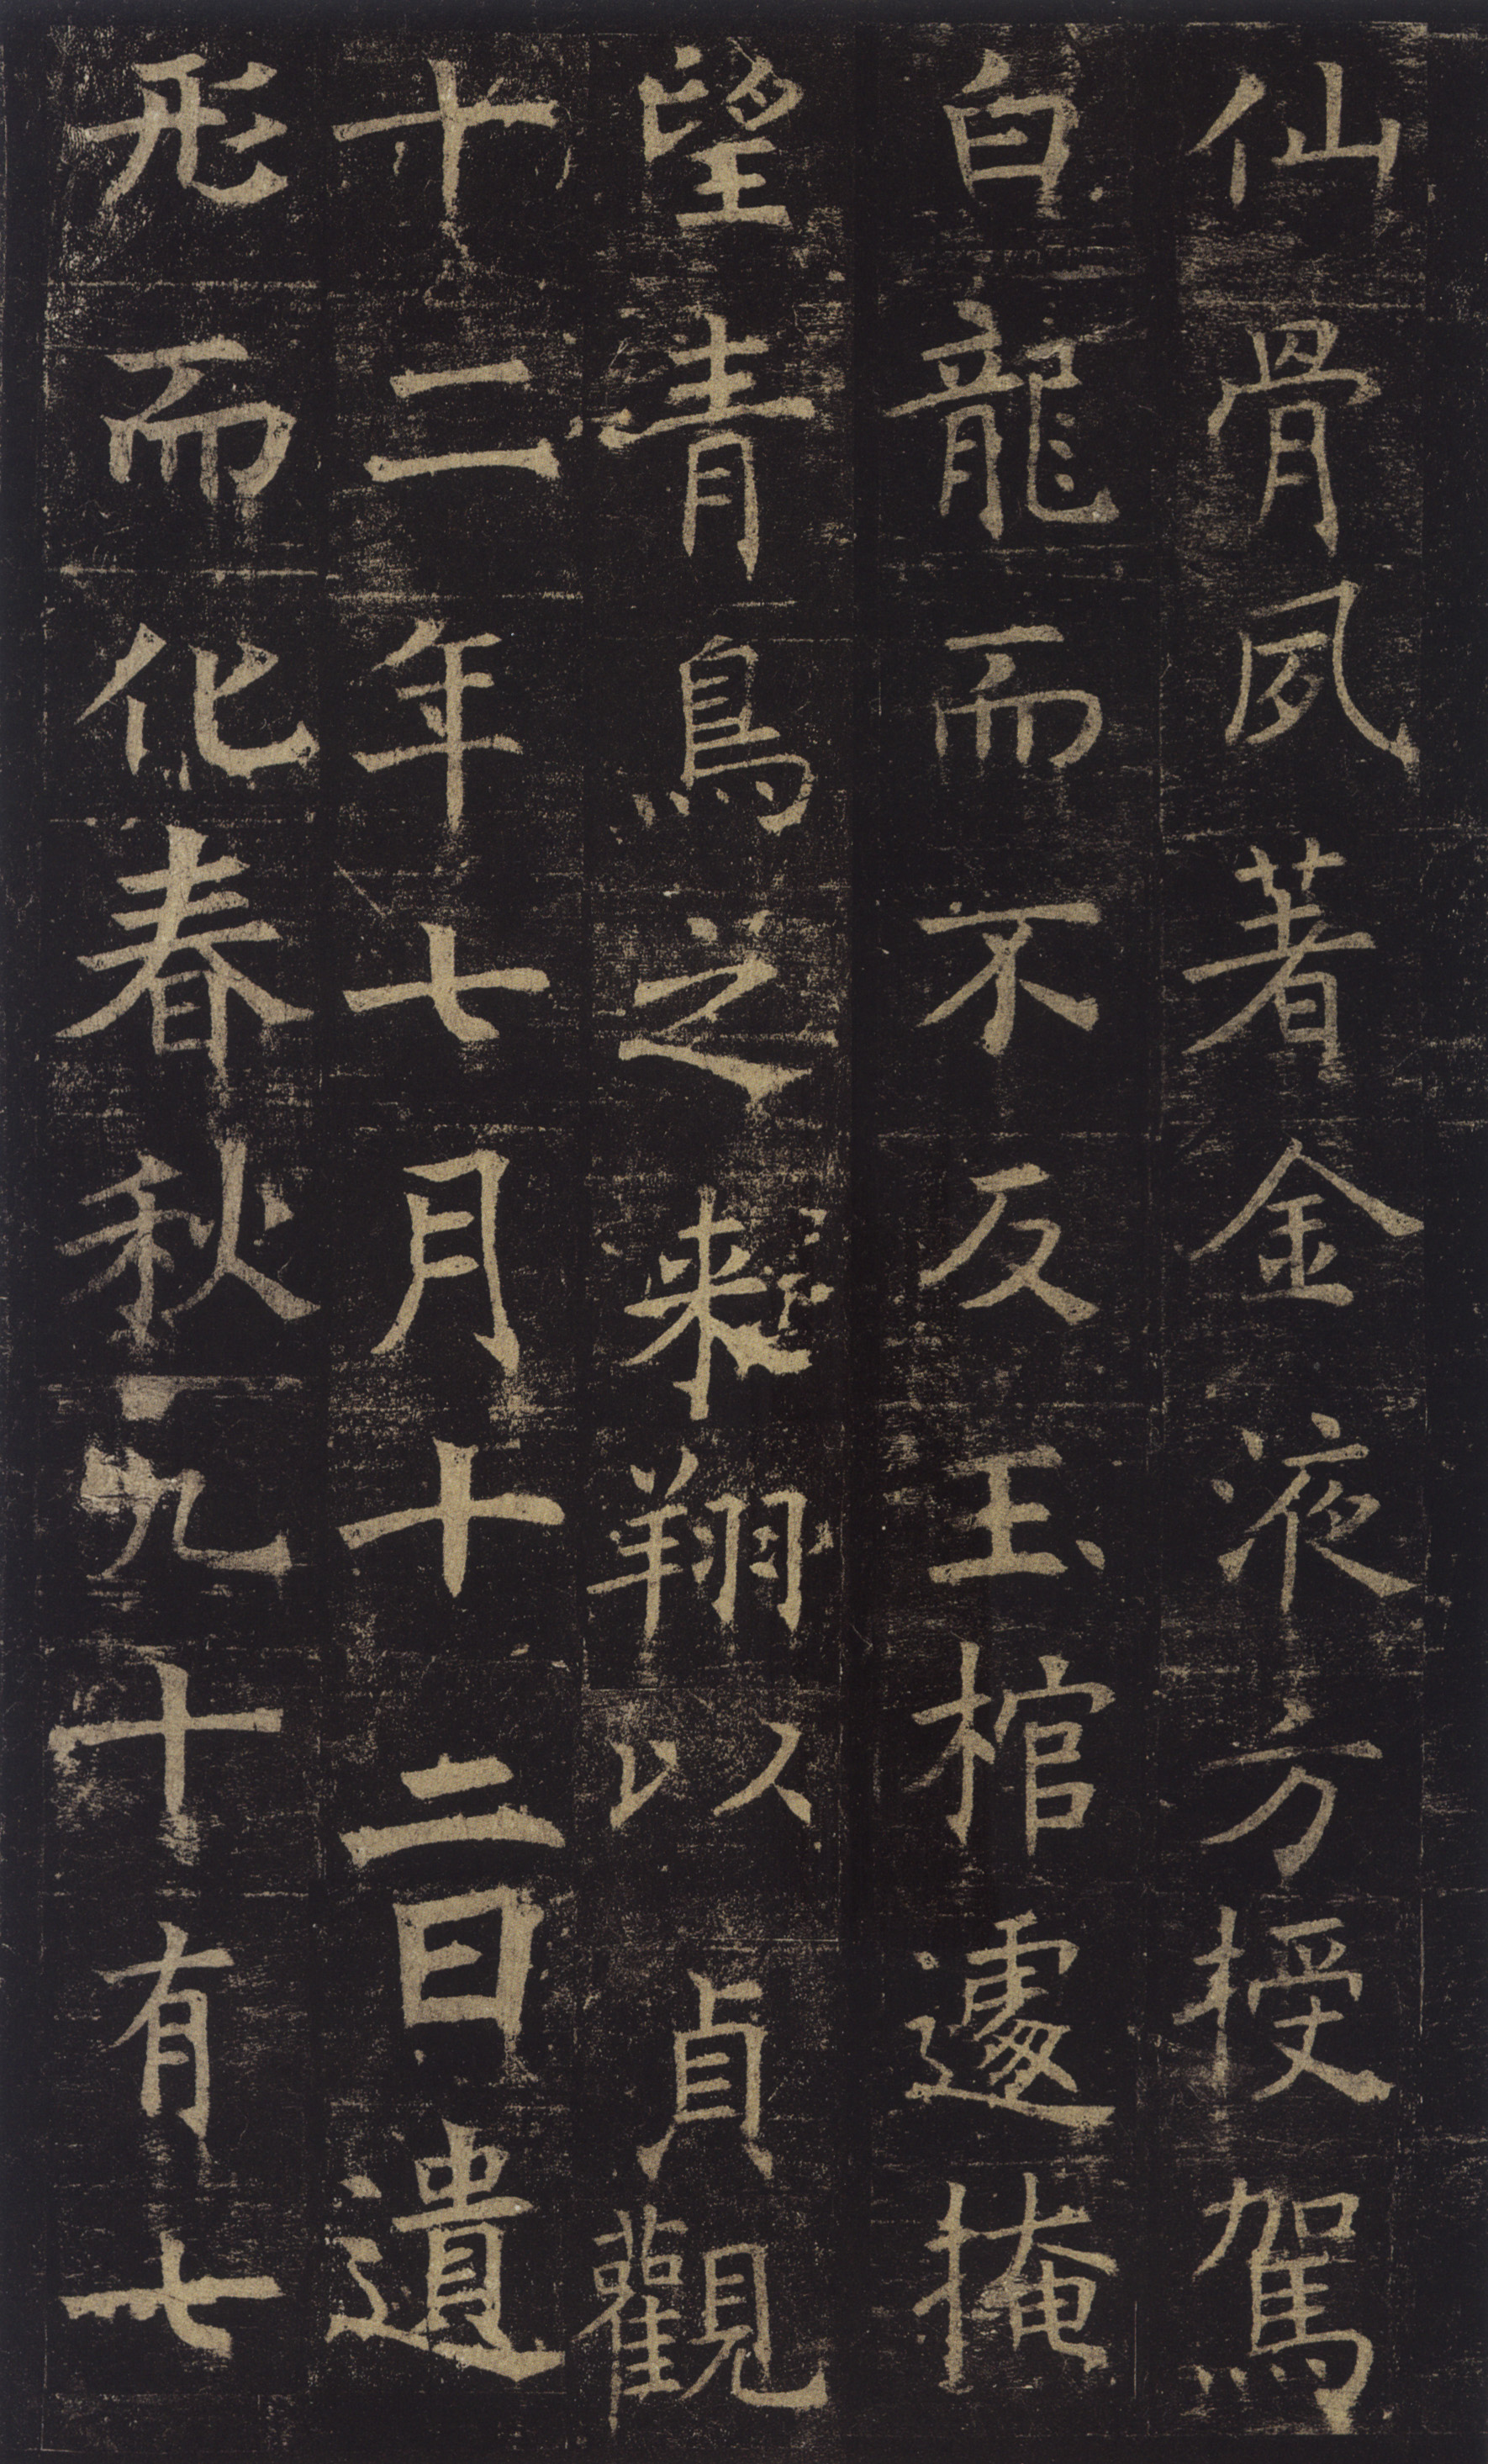 仙骨夙著金液方授駕
白龍而不反玉棺遽掩
望青鳥之來翔以貞觀
十二年七月十二日遺
形而化春秋九十有七